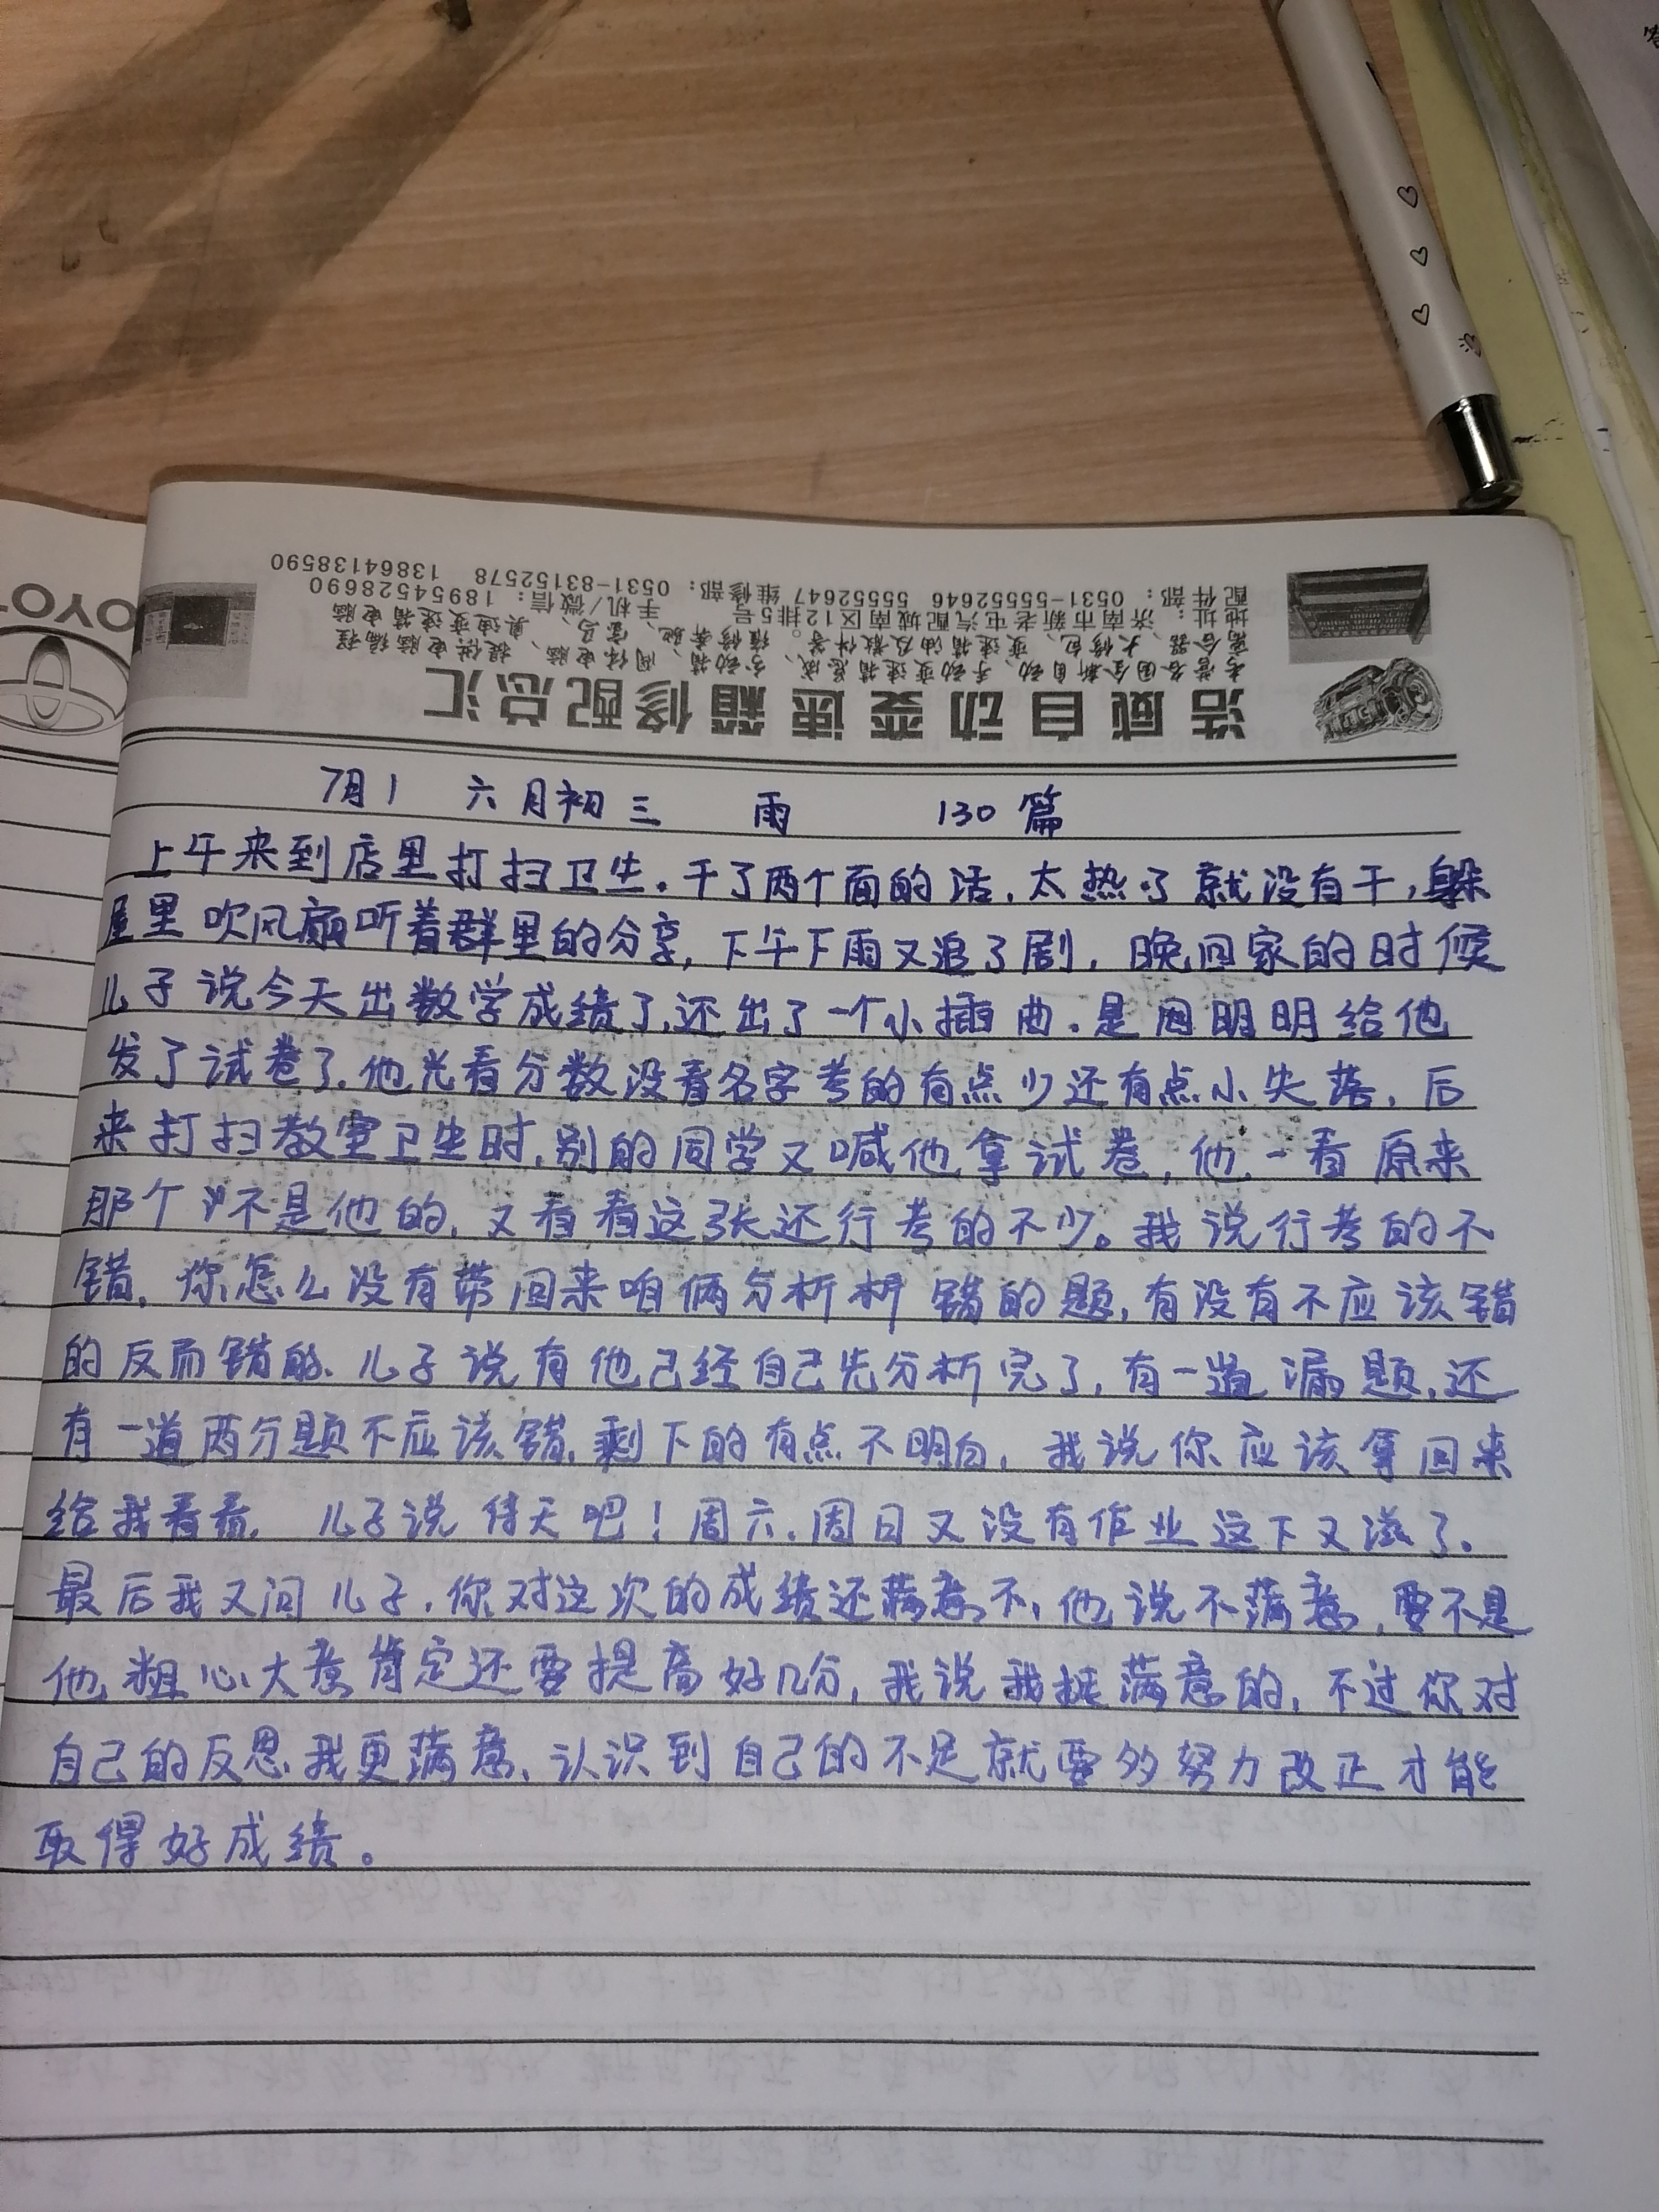 OYO
浩威自动变速箱修配总汇
老营各国全新自动、手动变速箱总成、分动箱、阀体电脑、提供电脑编程
离合器、大修包、变速箱油及散件等。维修奔驰、宝马、奥迪变速箱电脑
地址：济南市新老屯汽配城南区12排5号 手机/微信：18954528690
配件部：0531-55552646 55552647 维修部：0531-83152578 13864138590
7月1 六月初三 雨 130篇
上午来到店里打扫卫生。干了两个面的活，太热了就没有干，躲
屋里吹风扇听着群里的分享，下午下雨又追了剧，晚回家的时候
儿子说今天出数学成绩了，还出了一个小插曲。是周明明给他
发了试卷了，他光看分数没看名字考的有点少还有点小失落，后
来打扫教室卫生时，别的同学又喊他拿试卷，他一看原来
那个不是他的，又看看这张还行考的不少。我说行考的不
错，你怎么没有带回来咱俩分析析错的题，有没有不应该错
的反而错的、儿子说有他己经自己先分析完了，有一道漏题，还
有一道两分题不应该错，剩下的有点不明白，我说你应该拿回来
给我看看， 儿子说待天吧！周六、周日又没有作业这下又滋了。
最后我又问儿子，你对这次的成绩还满意不，他说不满意，要不是
他粗心大意肯定还要提高好几分，我说我挺满意的，不过你对
自己的反思我更满意、认识到自己的不足就要多努力改正才能
取得好成绩。